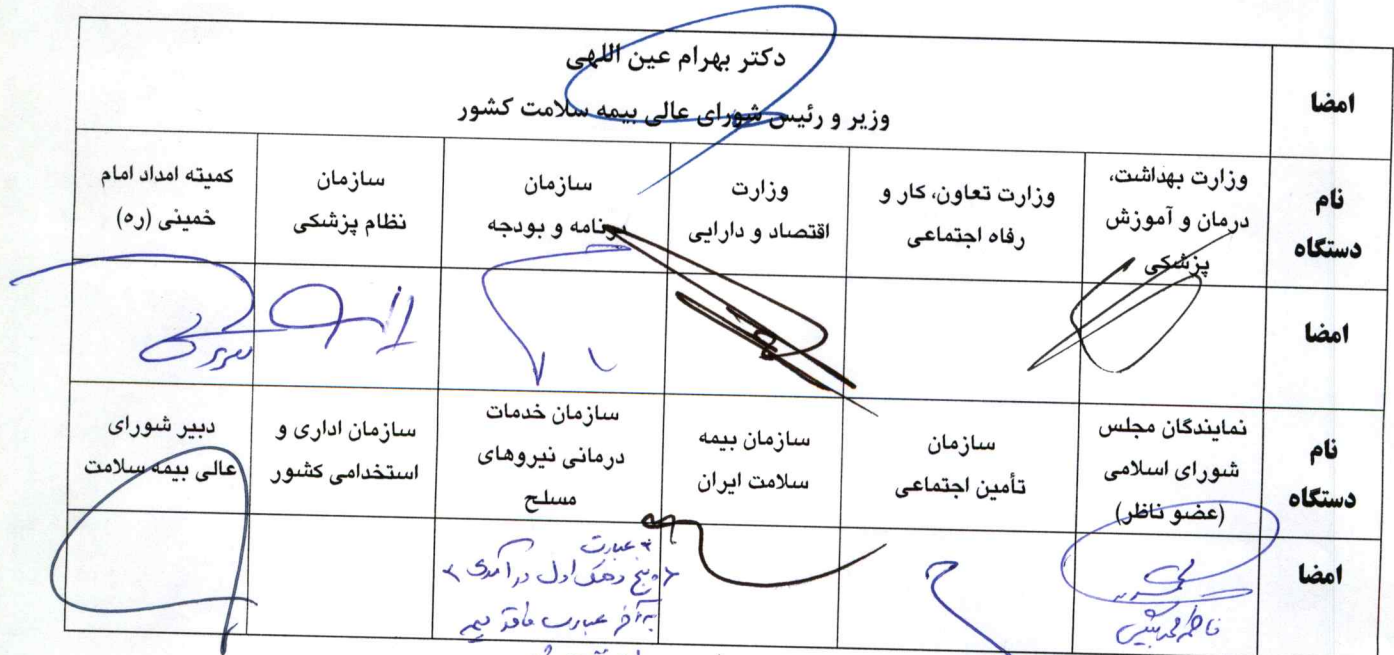 امضا
دکتر بهرام عین اللهی
وزیر و رئیس شورای عالی بیمه سلامت کشور
نام
دستگاه
وزارت بهداشت،
درمان و آموزش
پزشکی
وزارت تعاون، کار و
رفاه اجتماعی
وزارت
اقتصاد و دارایی
سازمان
برنامه و بودجه
سازمان
نظام پزشکی
کمیته امداد امام
خمینی (ره)
امضا
نام
دستگاه
نمایندگان مجلس
شورای اسلامی
(عضو ناظر)
سازمان
تأمین اجتماعی
سازمان بیمه
سلامت ایران
سازمان خدمات
درمانی نیروهای
مسلح
سازمان اداری و
استخدامی کشور
دبیر شورای
عالی بیمه سلامت
امضا
عبارت
پنج دهک اول درآمدی
به آخر عبارت فاقد بیمه